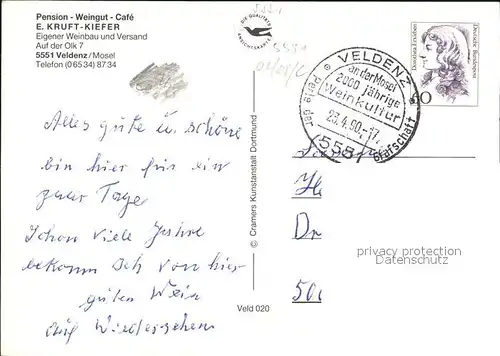 Pension - Weingut - Café
E. KRUFT-KIEFER
Eigener Weinbau und Versand
Auf der Olk 7
5551 Veldenz/Mosel
Telefon (0 65 34) 87 34
5551
DIE QUALITÄTS
ANSICHTSKARTE
VELDENZ
an der Mosel
2000 jährige
Weinkultur
23.4.90.-17
5551
Perle der
Grafschaft
Dorothea Erxleben
Deutsche Bundespost
60
Alles gute u. schöne
bin hier für ein
paar Tage
Schon viele Jahre
bekomm ich von hier
guten Wein
auf Wiedersehen
© Cramers Kunstanstalt Dortmund
Veld 020
privacy protection
Datenschutz